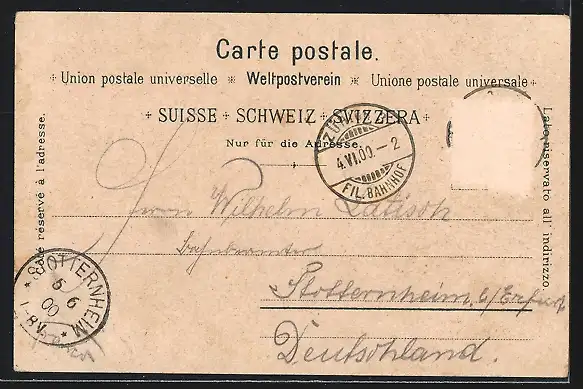 Carte postale.
Union postale universelle ⁎ Weltpostverein ⁎ Unione postale universale
SUISSE + SCHWEIZ + SVIZZERA
Nur für die Adresse.
Côté réservé à l'adresse.
Lato riservato all' indirizzo.
ZÜRICH
4.VI.00. – 2
FIL. BAHNHOF
Herrn Wilhelm
Stotternheim b/Erfurt
Deutschland.
STOTTERNHEIM
5 6
00